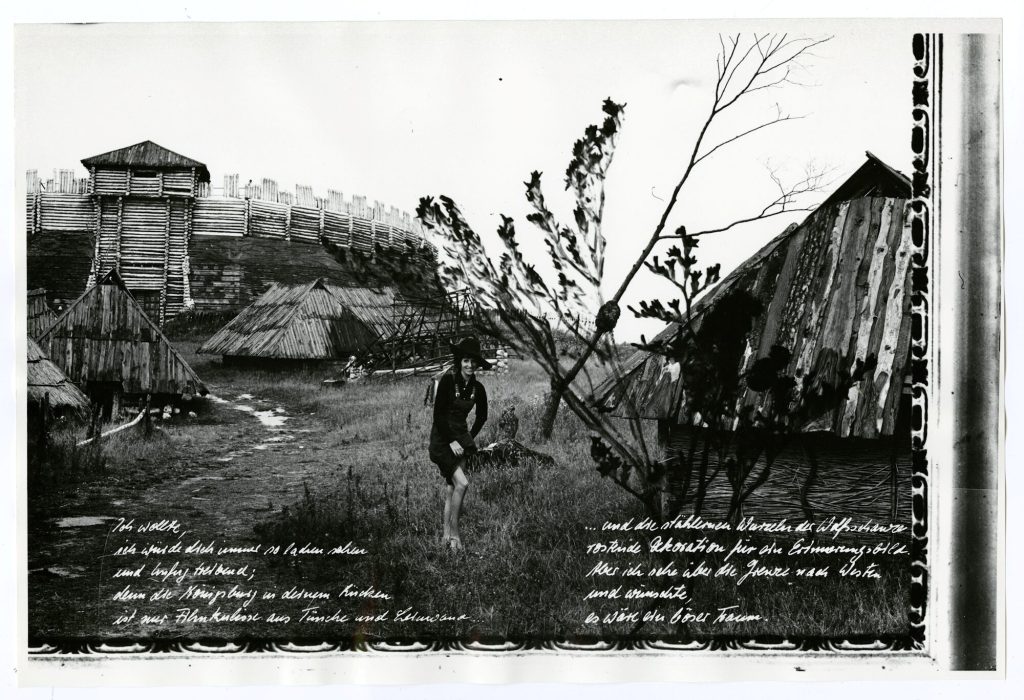 Ich wollte,
ich würde dich immer so lachen sehen
und Unfug treibend;
denn die Königsburg in deinem Rücken
ist nur Filmkulisse aus Tünche und Leinwand
... und die stählernen Wurzeln der Wolfsschanze
rostende Dekoration für ein Erinnerungsbild
Aber ich sehe über die Grenze nach Westen
und wünschte,
es wäre ein böser Traum.